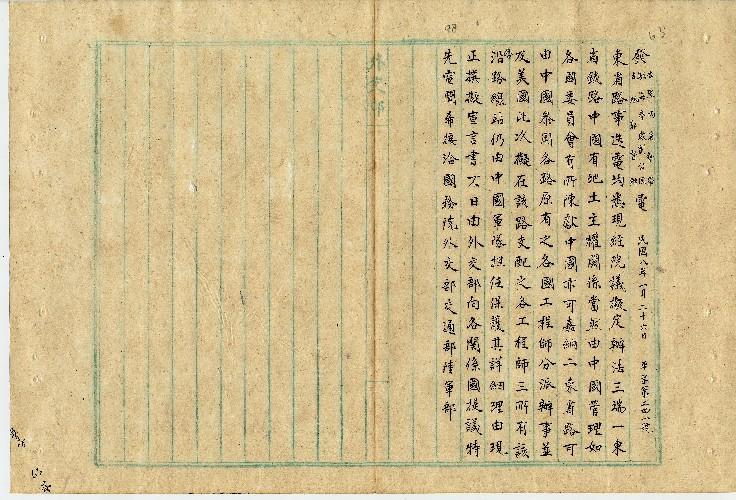 發
電
民國八年一月二十六日
東省路事迭電均悉現經院議擬定辦法三端一東
省鐵路中國有地土主權關係當然由中國管理如
各國委員會有所陳獻中國亦可嘉納二東省路可
由中國參用各路原有之各國工程師分派辦事並
及美國此次擬在該路支配之各工程師三所有該
沿路線站仍由中國軍隊擔任保護其詳細理由現
正撰擬宣言書次日由外交部向各關係國提議特
先電聞希接洽國務院外交部交通部陸軍部
外交部